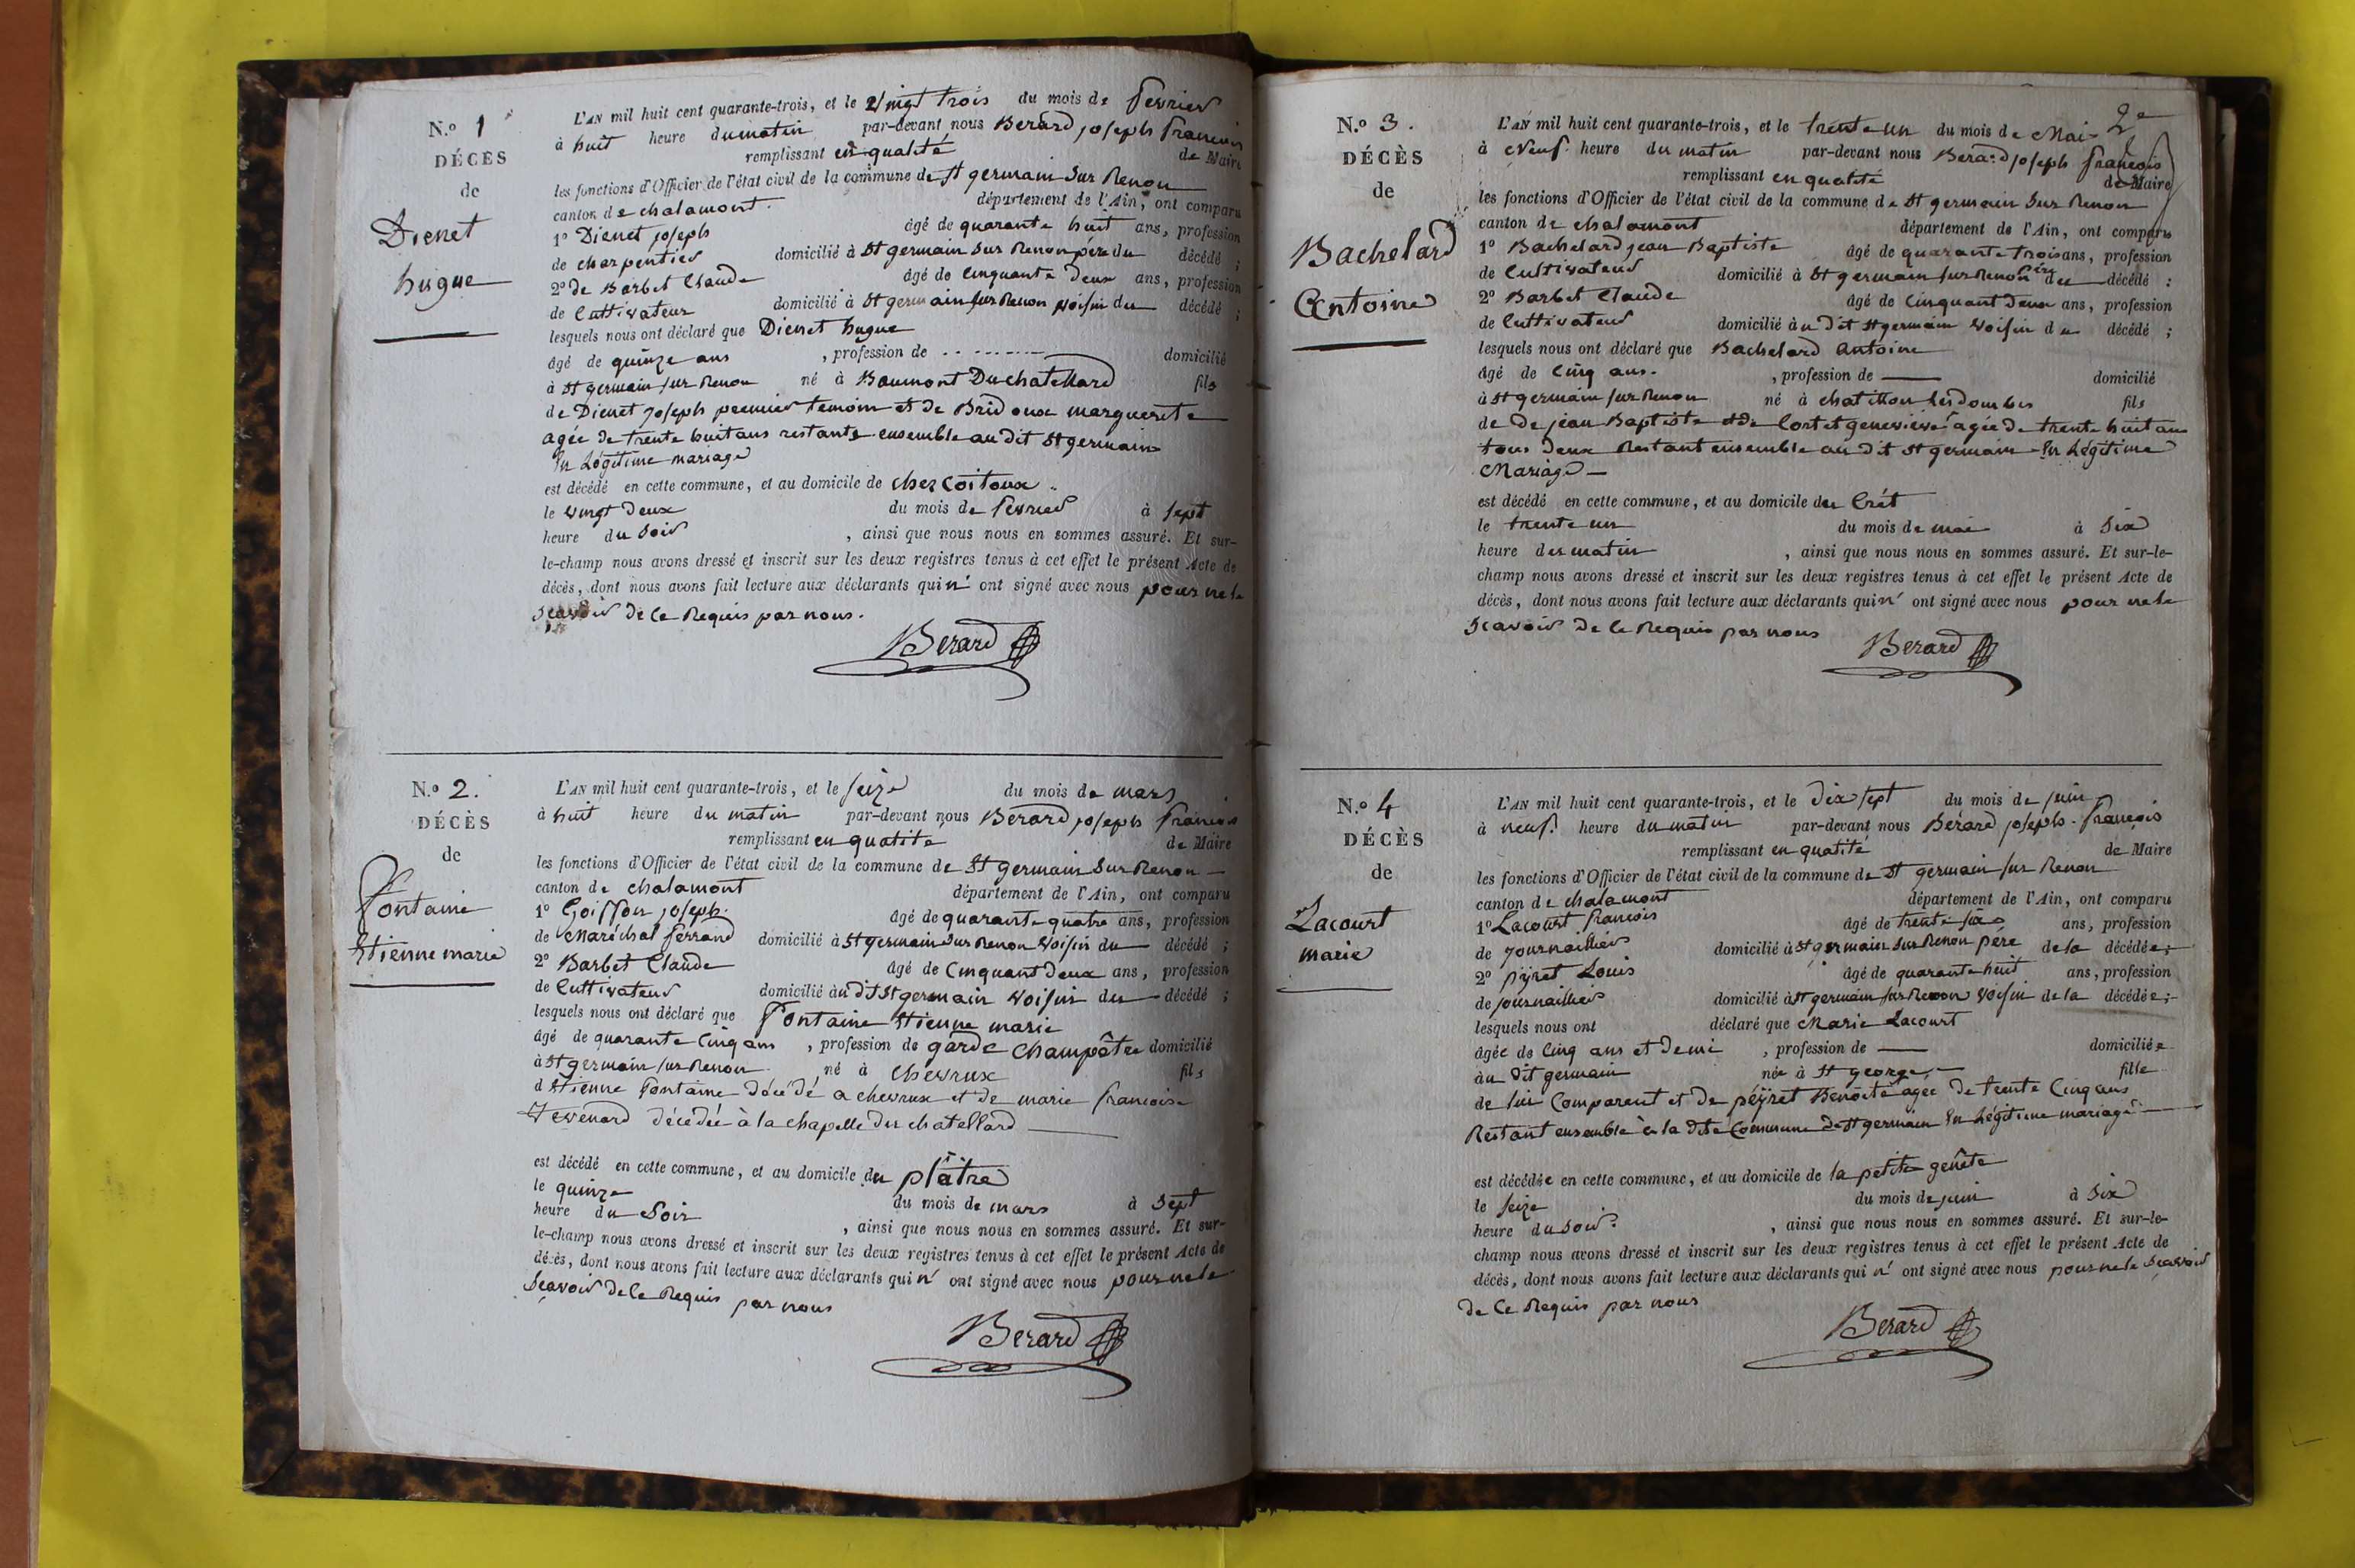 N.o 1
DÉCÈS
de
Dienet
hugue
L'AN mil huit cent quarante-trois, et le vingt trois du mois de fevrier
à huit heure du matin par-devant nous Berard joseph francois
remplissant en qualité de Maire
les fonctions d'Officier de l'état civil de la commune de St germain Sur Renon
canton de chalamont département de l'Ain, ont comparu
1o Dienet joseph âgé de quarante huit ans, profession
de charpentier domicilié à St germain Sur Renon père du décédé ;
2o de Barbet Claude âgé de Cinquante deux ans, profession
de Cultivateur domicilié à St germain Sur Renon voisin du décédé ;
lesquels nous ont déclaré que Dienet hugue
âgé de quinze ans , profession de domicilié
à St germain Sur Renon né à Baumont Duchatellard fils
de Dienet joseph premier temoin et de Bridoux marguerite
agée de trente huit ans restants ensemble au dit St germain
En Légitime mariage
est décédé en cette commune, et au domicile de chez Coitoux
le vingt deux du mois de fevrier à sept
heure du Soir , ainsi que nous nous en sommes assuré. Et sur-
le-champ nous avons dressé et inscrit sur les deux registres tenus à cet effet le présent Acte de
décès, dont nous avons fait lecture aux déclarants qui n' ont signé avec nous pour ne le
Scavoir de Ce Requis par nous.
Berard
N.o 2.
DÉCÈS
de
Fontaine
Etienne marie
L'AN mil huit cent quarante-trois, et le Seize du mois de mars
à huit heure du matin par-devant nous Berard joseph francois
remplissant en qualité de Maire
les fonctions d'Officier de l'état civil de la commune de St germain Sur Renon
canton de chalamont département de l'Ain, ont comparu
1o Goiffon joseph. âgé de quarante quatre ans, profession
de Maréchal ferrand domicilié à St germain Sur Renon Voisin du décédé ;
2o Barbet Claude âgé de Cinquant Deux ans, profession
de Cultivateur domicilié au dit St germain Voisin du décédé ;
lesquels nous ont déclaré que Fontaine Etienne marie
âgé de quarante Cinq ans , profession de garde Champêtre domicilié
à St germain Sur Renon né à Chevrux fils
d Etienne Fontaine décédé a chevrux et de marie francoise
Tevenard décédée à la chapelle du chatellard
est décédé en cette commune, et au domicile du plâtre
le quinze du mois de mars à Sept
heure du Soir , ainsi que nous nous en sommes assuré. Et sur-
le-champ nous avons dressé et inscrit sur les deux registres tenus à cet effet le présent Acte de
décès, dont nous avons fait lecture aux déclarants qui n' ont signé avec nous pour ne le
Scavoir de Ce Requis par nous
Berard
2e
N.o 3.
DÉCÈS
de
Bachelard
Antoine
L'AN mil huit cent quarante-trois, et le trente un du mois de Mai
à Neuf heure du matin par-devant nous Berard joseph francois
remplissant en qualité de Maire
les fonctions d'Officier de l'état civil de la commune de St germain Sur Renon
canton de chalamont département de l'Ain, ont comparu
1o Bachelard jean Baptiste âgé de quarante trois ans, profession
de Cultivateur domicilié à St germain sur Renon père du décédé ;
2o Barbet Claude âgé de Cinquant deux ans, profession
de Cultivateur domicilié au dit St germain Voisin du décédé ;
lesquels nous ont déclaré que Bachelard Antoine
âgé de Cinq ans. , profession de domicilié
à St germain sur Renon né à chatillon les dombes fils
de De jean Baptiste et de Contet genevieve agée de trente huit ans
tous deux Restant ensemble au dit St germain En Légitime
Mariage
est décédé en cette commune, et au domicile du Crêt
le trente un du mois de mai à Six
heure du matin , ainsi que nous nous en sommes assuré. Et sur-le-
champ nous avons dressé et inscrit sur les deux registres tenus à cet effet le présent Acte de
décès, dont nous avons fait lecture aux déclarants qui n' ont signé avec nous pour ne le
Scavoir de Ce Requis par nous
Berard
N.o 4
DÉCÈS
de
Lacourt
marie
L'AN mil huit cent quarante-trois, et le Dix sept du mois de juin
à neuf. heure du matin par-devant nous Bérard joseph françois
remplissant en qualité de Maire
les fonctions d'Officier de l'état civil de la commune de St germain sur Renon
canton de chalamont département de l'Ain, ont comparu
1o Lacourt francois âgé de trente six ans, profession
de journaillier domicilié à St germain Sur Renon père de la décédée ;
2o péyret Louis âgé de quarante huit ans, profession
de journaillier domicilié à St germain sur Renon Voisin de la décédée ;
lesquels nous ont déclaré que Marie Lacourt
âgée de Cinq ans et demi , profession de domiciliée
au dit germain née à St george fille
de lui Comparent et de péyret Benoite agée de trente Cinq ans
Restant ensemble à la Dite Commune de St germain En Légitime mariage
est décédée en cette commune, et au domicile de la petite genête
le Seize du mois de juin à Six
heure du Soir. , ainsi que nous nous en sommes assuré. Et sur-le-
champ nous avons dressé et inscrit sur les deux registres tenus à cet effet le présent Acte de
décès, dont nous avons fait lecture aux déclarants qui n' ont signé avec nous pour ne le Scavoir
de Ce Requis par nous
Berard